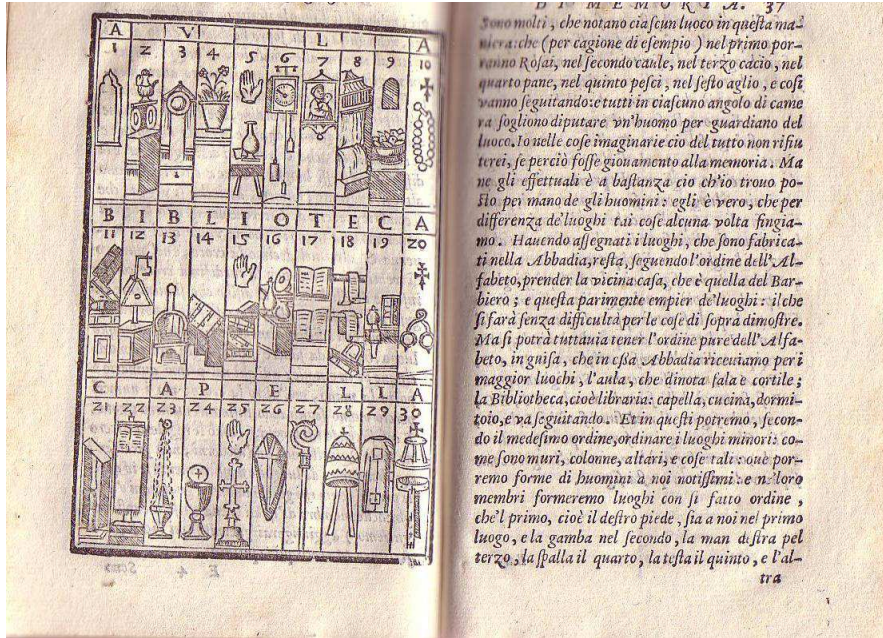 A V L A
1 2 3 4 5 6 7 8 9 10
B I B L I O T E C A
11 12 13 14 15 16 17 18 19 20
C A P E L L A
21 22 23 24 25 26 27 28 29 30
E 4
DI MEMORIA. 37
Sono molti, che notano ciaſcun luoco in queſta ma-
niera: che (per cagione di eſempio) nel primo por-
ranno Roſai, nel ſecondo caule, nel terzo cacio, nel
quarto pane, nel quinto peſci, nel ſeſto aglio, e coſi
vanno ſeguitando: e tutti in ciaſcuno angolo di came
ra ſogliono diputare vn'huomo per guardiano del
luoco. Io nelle coſe imaginarie cio del tutto non rifiu
terei, ſe perciò foſſe giouamento alla memoria. Ma
ne gli effettuali è a baſtanza cio ch'io trouo po-
ſto per mano de gli huomini: egli è vero, che per
differenza de'luoghi tai coſe alcuna volta fingia-
mo. Hauendo aſſegnati i luoghi, che ſono fabrica-
ti nella Abbadia, reſta, ſeguendo l'ordine dell'Al-
fabeto, prender la vicina caſa, che è quella del Bar-
biero; e queſta parimente empier de'luoghi: il che
ſi farà ſenza difficultà per le coſe di ſopra dimoſtre.
Ma ſi potrà tuttauia tener l'ordine pure dell'Alfa-
beto, in guiſa, che in eſſa Abbadia riceuiamo per i
maggior luochi, l'aula, che dinota ſala e cortile;
la Bibliotheca, cioè libraria: capella, cucina, dormi-
toio, e va ſeguitando. Et in queſti potremo, ſecon-
do il medeſimo ordine, ordinare i luoghi minori: co-
me ſono muri, colonne, altari, e coſe tali: oue por-
remo forme di huomini à noi notiſſimi: e ne'loro
membri formeremo luoghi con ſi fatto ordine,
che'l primo, cioè il deſtro piede, ſia a noi nel primo
luogo, e la gamba nel ſecondo, la man deſtra pel
terzo, la ſpalla il quarto, la teſta il quinto, e l'al-
tra